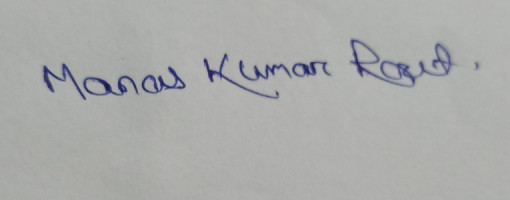 Manas Kumar Rout.